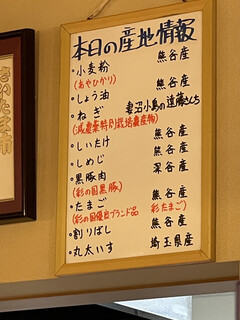 本日の産地情報
・小麦粉 熊谷産
(あやひかり)
・しょう油 熊谷産
・ねぎ 妻沼小島の遠藤さんち
(減農薬特別栽培農産物)
・しいたけ 熊谷産
・しめじ 深谷産
・黒豚肉 熊谷産
(彩の国黒豚)
・たまご 熊谷産
(彩の国優良ブランド品 彩たまご)
・割りばし 熊谷産
・丸太いす 埼玉県産
さいたま市